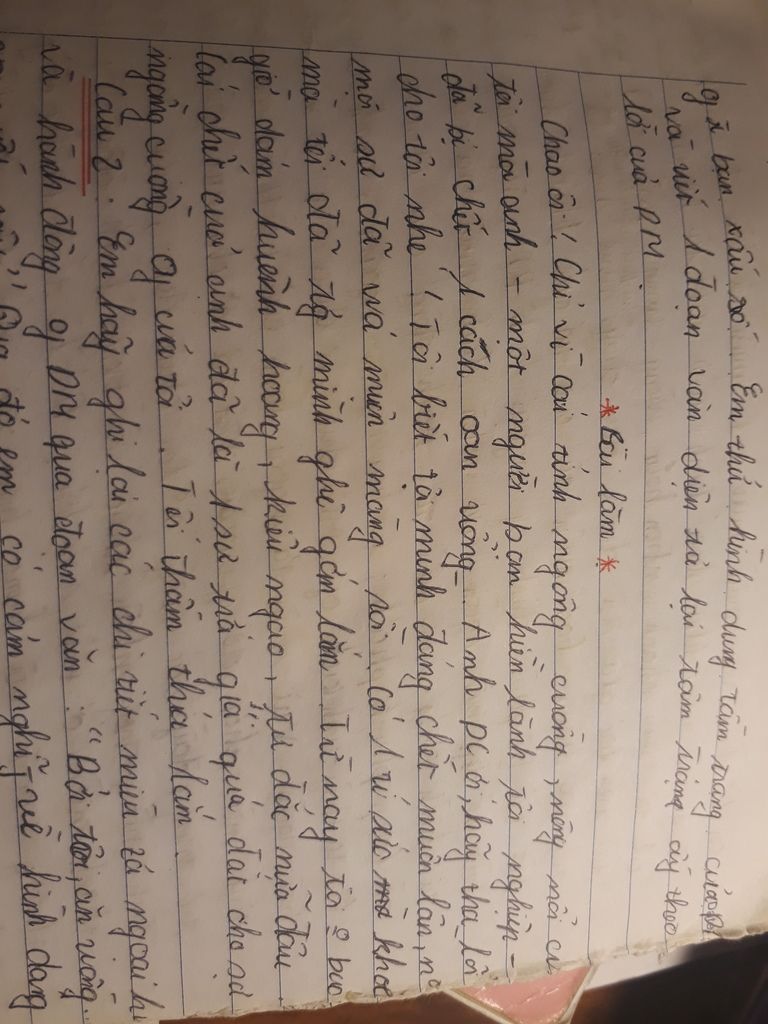 gx bạn xấu số. Em thử hình dung tâm trạng của
và viết 1 đoạn văn diễn tả lại tâm trạng ấy theo
lời của DM.
* Bài làm *
Chao ôi! Chỉ vì cái tính ngông cuồng, nông nổi củ
tôi mà anh - một người bạn hiền lành tội nghiệp -
đã bị chết 1 cách oan uổng. Anh DC ơi, hãy tha lỗi
cho tôi nhé! Tôi biết là mình đáng chết muôn lần, n
mọi sự đã vá muộn màng rồi. Có 1 tí sức khỏe
mà tôi đã tg mình ghê gớm lắm. Từ nay tôi o bao
giờ dám huênh hoang, kiêu ngạo, tự đắc nữa đâu.
Cái chết của anh đã là 1 sự trả giá quá đắt cho sự
ngông cuồng ấy của tôi. Tôi thấm thía lắm.
Câu 2. Em hãy ghi lại các chi tiết miêu tả ngoại hì
và hành động of DM qua đoạn văn: "Bởi tôi ăn uống..
Qua đó em có cảm nghĩ về hình dáng